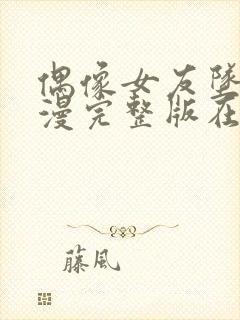 偶像女友墜
漫完整版在
藤風